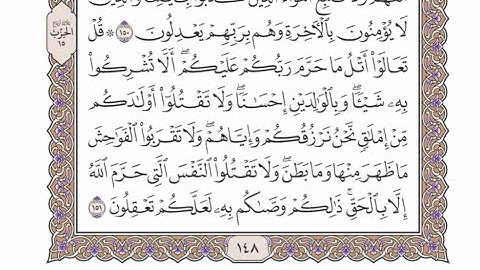 لَا يُؤْمِنُونَ بِٱلْأَخِرَةِ وَهُم بِرَبِّهِمْ يَعْدِلُونَ ١٥٠ ۞ قُلْ
تَعَالَوْا۟ أَتْلُ مَا حَرَّمَ رَبُّكُمْ عَلَيْكُمْ ۖ أَلَّا تُشْرِكُوا۟
بِهِۦ شَيْـًٔا ۖ وَبِٱلْوَٰلِدَيْنِ إِحْسَٰنًا ۖ وَلَا تَقْتُلُوٓا۟ أَوْلَٰدَكُم
مِّنْ إِمْلَٰقٍ ۖ نَّحْنُ نَرْزُقُكُمْ وَإِيَّاهُمْ ۖ وَلَا تَقْرَبُوا۟ ٱلْفَوَٰحِشَ
مَا ظَهَرَ مِنْهَا وَمَا بَطَنَ ۖ وَلَا تَقْتُلُوا۟ ٱلنَّفْسَ ٱلَّتِى حَرَّمَ ٱللَّهُ
إِلَّا بِٱلْحَقِّ ۚ ذَٰلِكُمْ وَصَّىٰكُم بِهِۦ لَعَلَّكُمْ تَعْقِلُونَ ١٥١
الحِزْب
١٥
١٤٨